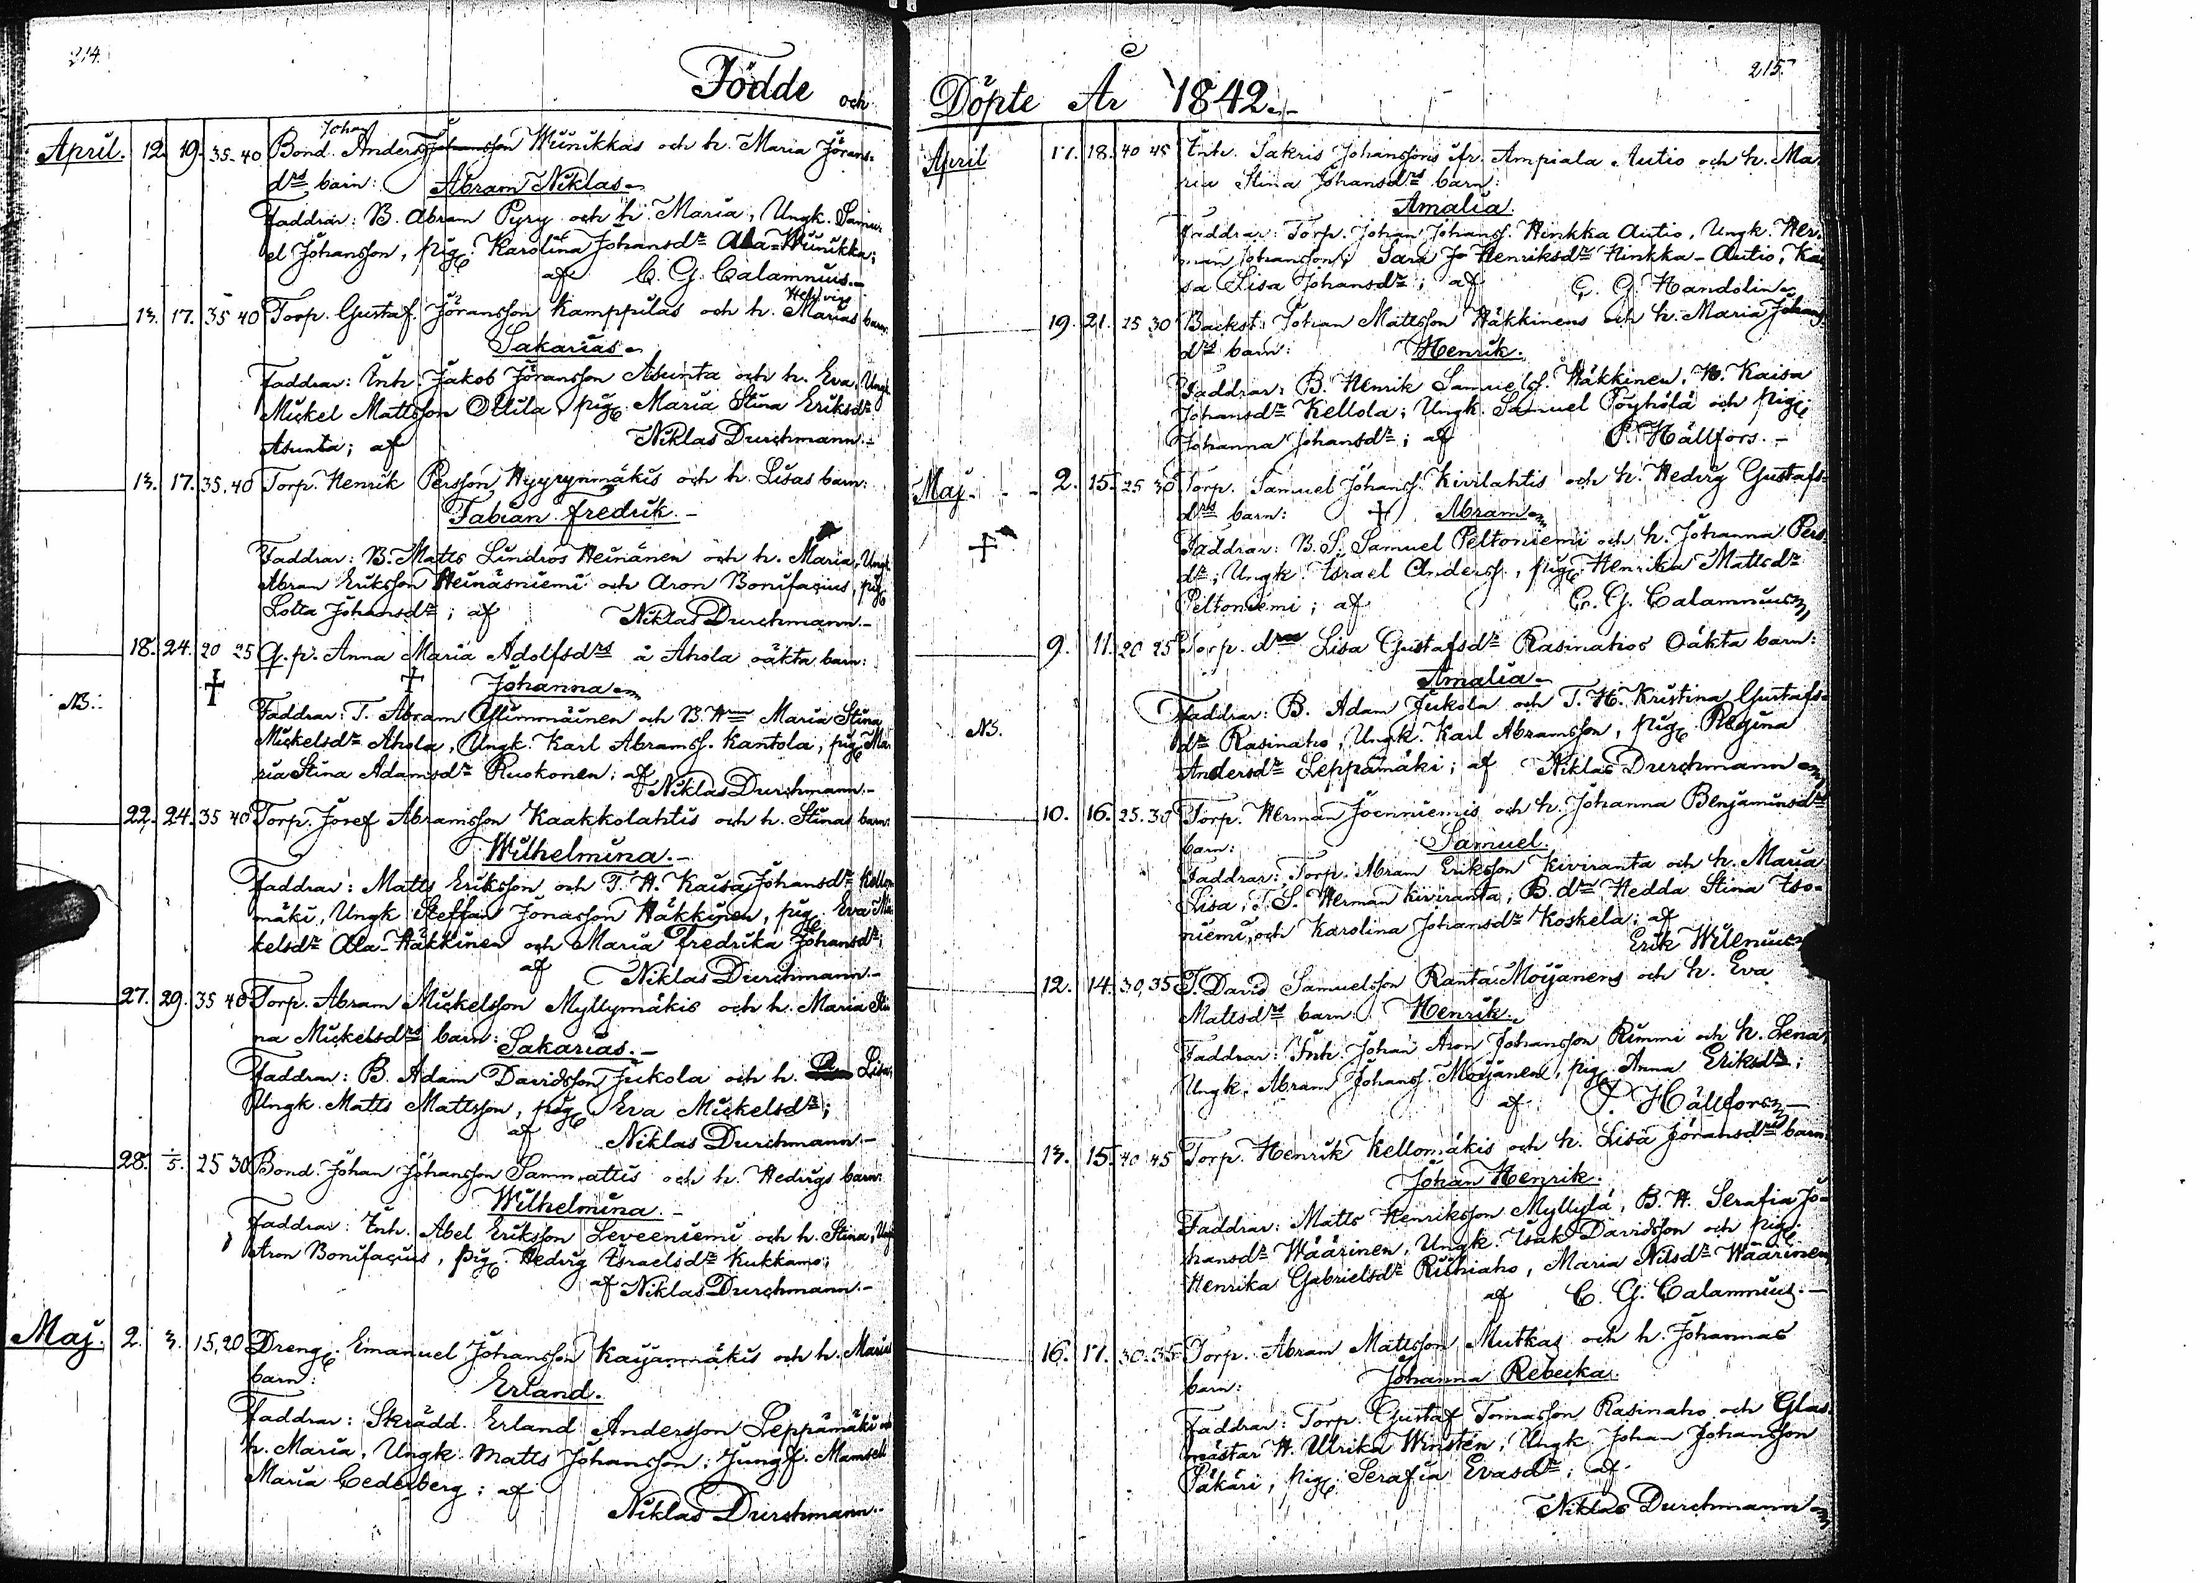 214.
Födde och
April. 12. 19. 35-40 Bond. Anders Johan Johansson Wiinikkas och h. Maria Jörans-
drs barn: Abram Niklas
Faddrar: B. Abram Pyry och h. Maria, Ungk. Samu-
el Johansson, pig. Karolina Johansdr Ala-Wiinikka;
af C. G. Calamnius.
13. 17. 35 40 Torp. Gustaf Jöransson Kamppilas och h. Marias Hedvigs barn:
Sakarias
Faddrar: Inh. Jakob Jöransson Asunta och h. Eva, Ungk.
Mickel Mattsson Ollila, pig. Maria Stina Eriksdr
Asunta; af Niklas Durchmann.-
13. 17. 35.40 Torp. Henrik Persson Hyyrynmäkis och h. Lisas barn:
Fabian Fredrik.-
Faddrar: B. Matts Lindros Heinänen och h. Maria, Ungk.
Abran Eriksson Heinäsniemi och Aron Bonifacius, pig.
Lotta Johansdr; af Niklas Durchmann.-
18. 24. 20 25 Q.p. Anna Maria Adolfsdrs å Ahola oäkta barn:
† † Johanna
NB.: Faddrar: T. Abram Määinen och B. Hrm Maria Stina
Mickelsdr Ahola, Ungk. Karl Abramss. Kantola, pig. Ma-
ria Stina Adamsdr Ruokonen; af
Niklas Durchmann.-
22. 24. 35 40 Torp. Josef Abramsson Kaakkolahtis och h. Stinas barn:
Wilhelmina.-
Faddrar: Matts Eriksson och T. H. Kaisa Johansdr Kello-
mäki, Ungk Steffan Jonasson Häkkinen, pig. Eva Mi-
kelsdr Ala-Häkkinen och Maria Fredrika Johansdr;
af Niklas Durchmann.-
27. 29. 35 40 Torp. Abram Mickelsson Myllymäkis och h. Maria Sti-
na Mickelsdrs barn: Sakarias.-
Faddrar: B. Adam Davidsson Jukola och h. Lisa,
Ungk. Matts Mattsson, pig. Eva Mickelsdr;
af Niklas Durchmann.-
28. 1/5. 25 30 Bond. Johan Johansson Sammattis och h. Hedvigs barn:
Wilhelmina.-
Faddrar: Inh. Abel Eriksson Leveeniemi och h. Stina, Ungk
Aron Bonifacius, pig. Hedvig Israelsdr Kukkamo;
af Niklas Durchmann.-
Maj. 2. 3. 15,20 Dreng. Emanuel Johansson Kaijanmäkis och h. Marias
barn: Erland.
Faddrar: Skrädd. Erland Andersson Leppämäki och
h. Maria, Ungk. Matts Johansson; Jungf. Mamsell
Maria Cederberg; af
Niklas Durchmann.
215.
Döpte År 1842.-
April 17. 18. 40 45 Inh. Sakris Johanssons ifr. Ampiala Autio och h. Ma-
ria Stina Johansdrs barn:
Amalia.
Faddrar: Torp. Johan Johanss. Hinkka Autio, Ungk. Her-
man Johansson, Sara Henriksdr Hinkka-Autio, Kai-
sa Lisa Johansdr; af C. G. Handolin
19. 21. 25 30 Backst. Johan Mattsson Häkkinens och h. Maria Johans-
drs barn: Henrik.
Faddrar: B. Henrik Samuelss. Häkkinen, H. Kaisa
Johansdr Kellola; Ungk. Samuel Pöyhölä och pig.
Johanna Johansdr; af P. Hällfors.-
Maj. 2. 15. 25 30 Torp. Samuel Johanss. Kivilahtis och h. Hedvig Gustafs-
drs barn: † Abram
† Faddrar: B. S. Samuel Peltoniemi och h. Johanna Pers-
dr; Ungk. Israel Anderss., pig. Henrika Mattsdr
Peltoniemi; af C. G. Calamnius
9. 11. 20 25 Torp. drs Lisa Gustafsdr Rasinahos Oäkta barn:
Amalia
NB. Faddrar: B. Adam Jukola och T. H. Kristina Gustafs-
dr Rasinaho, Ungk. Karl Abramsson, pig. Regina
Andersdr Leppämäki; af Niklas Durchmann
10. 16. 25.30 Torp. Herman Joenniemis och h. Johanna Benjaminsdrs
barn: Samuel.
Faddrar: Torp. Abram Eriksson Kiviranta och h. Maria
Lisa, T. S. Herman Kiviranta, B. dr Hedda Stina Iso-
niemi, och Karolina Johansdr Koskela; af
Erik Wilenius
12. 14. 30,35 T. David Samuelsson Ranta-Moijanens och h. Eva
Mattsdrs barn: Henrik.
Faddrar: Inh. Johan Aron Johansson Rimmi och h. Lena,
Ungk. Abram Johanss. Moijanen, pig. Anna Eriksdr;
af P. Hällfors
13. 15. 40 45 Torp. Henrik Kellomäkis och h. Lisa Jöransdrs barn
Johan Henrik.
Faddrar: Matts Henriksson Myllylä, B. H. Serafia Jo-
hansdr Wäärinen, Ungk. Isak Davidsson och pig.
Henrika Gabrielsdr Riihiaho, Maria Nilsdr Wäärinen
af C. G. Calamnius.-
16. 17. 30.35 Torp. Abram Mattsson Mutkas och h. Johannas
barn: Johanna Rebecka.
Faddrar: Torp. Gustaf Tomasson Rasinaho och Glas-
mästar H. Ulrika Winsten, Ungk. Johan Johansson
Päkäri, pig. Serafia Evasdr; af
Niklas Durchmann